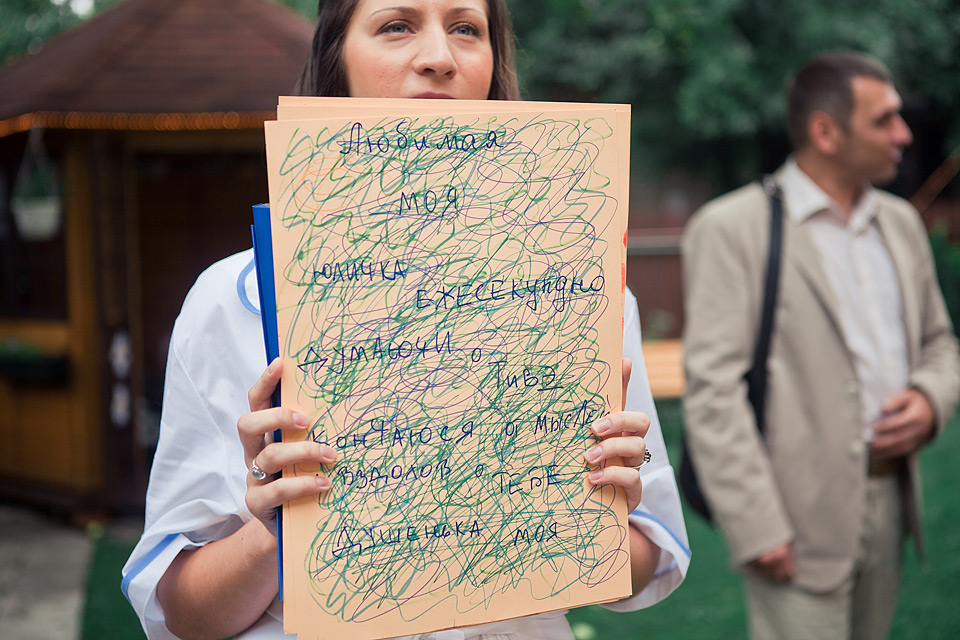 Любимая
моя
юличка
ежесекундно
думаючи о
тибэ
контаюся от мыслей
вздолов о тебе
душенька моя